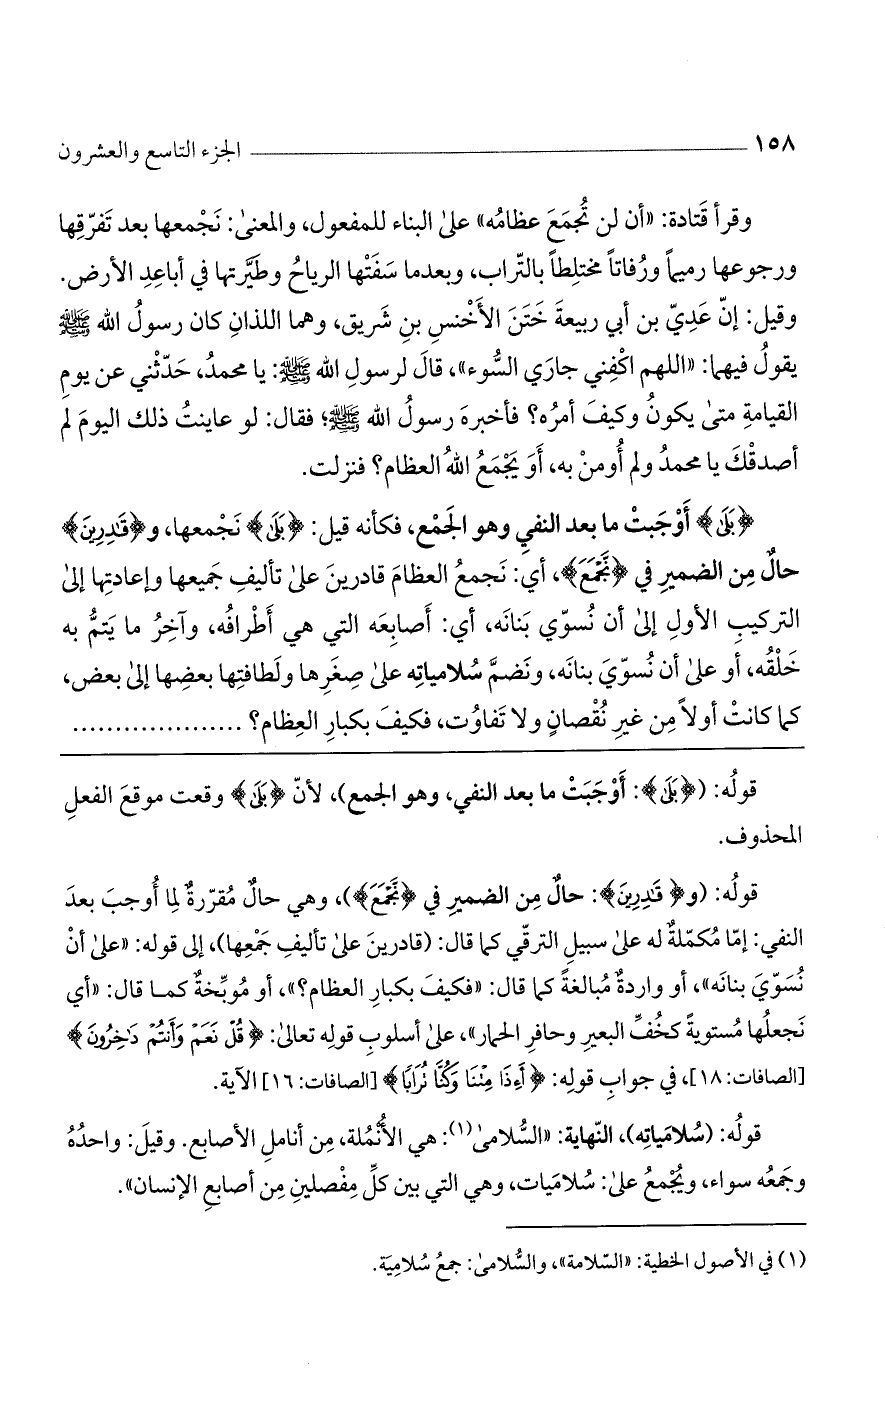 ١٥٨ الجزء التاسع والعشرون
وقرأ قَتادة: «أن لن تُجمَعَ عظامُه» علىٰ البناء للمفعول، والمعنىٰ: نَجْمعها بعد تَفرّقِها
ورجوعها رميماً ورُفاتاً مختلِطاً بالتّراب، وبعدما سَفَتْها الرياحُ وطَيَّرتها في أباعِدِ الأرض.
وقيل: إنّ عَدِيّ بن أبي ربيعةَ خَتَنَ الأَخْنسِ بنِ شَريق، وهما اللذانِ كان رسولُ الله ﷺ
يقولُ فيهما: «اللهم اكْفِني جارَي السُّوء»، قالَ لرسولِ الله ﷺ: يا محمدُ، حَدّثْني عن يومِ
القيامةِ متىٰ يكونُ وكيفَ أمرُه؟ فأخبرهَ رسولُ الله ﷺ؛ فقال: لو عاينتُ ذلك اليومَ لم
أصدقْكَ يا محمدُ ولم أُومنْ به، أَوَ يَجْمَعُ اللهُ العظام؟ فنزلت.
﴿بَلَىٰ﴾ أَوْجَبتْ ما بعد النفي وهو الجَمْع، فكأنه قيل: ﴿بَلَىٰ﴾ نَجْمعها، و﴿قَـٰدِرِينَ﴾
حالٌ مِن الضميرِ في ﴿نَّجْمَعَ﴾، أي: نَجمعُ العظامَ قادرينَ علىٰ تأليفِ جَميعها وإعادتِها إلىٰ
التركيبِ الأولِ إلىٰ أن نُسوّي بَنانَه، أي: أصابِعَه التي هي أَطْرافُه، وآخِرُ ما يَتمُّ به
خَلْقُه، أو علىٰ أن نُسوّيَ بنانَه، ونَضمَّ سُلامياتِه علىٰ صِغَرِها ولَطافتِها بعضِها إلىٰ بعض،
كما كانتْ أولاً مِن غيرِ نُقْصانٍ ولا تَفاوُت، فكيفَ بكبارِ العِظام؟ ....................
قولُه: (﴿بَلَىٰ﴾: أَوْجَبَتْ ما بعد النفي، وهو الجمع)، لأنّ ﴿بَلَىٰ﴾ وقعت موقعَ الفعلِ
المحذوف.
قولُه: (و﴿قَـٰدِرِينَ﴾: حالٌ مِن الضميرِ في ﴿نَّجْمَعَ﴾)، وهي حالٌ مُقرّرةٌ لِما أُوجبَ بعدَ
النفي: إمّا مُكمّلةٌ له علىٰ سبيلِ الترقّي كما قال: (قادرينَ علىٰ تأليفِ جَمْعِها)، إلىٰ قوله: «علىٰ أنْ
نُسَوّيَ بنانَه»، أو واردةٌ مُبالغةً كما قال: «فكيفَ بكبارِ العظام؟»، أو مُوبِّخةٌ كمـا قال: «أي
نَجعلُها مُستويةً كخُفِّ البعيرِ وحافرِ الحمار»، علىٰ أسلوبِ قولِه تعالىٰ: ﴿قُلْ نَعَمْ وَأَنتُمْ دَٰخِرُونَ﴾
[الصافات: ١٨]، في جوابِ قولِه: ﴿أَءِذَا مِتْنَا وَكُنَّا تُرَابًا﴾ [الصافات: ١٦] الآية.
قولُه: (سُلامَياتِه)، النّهاية: «السُّلامىٰ(١): هي الأُنْمُلة، مِن أناملِ الأصابع. وقيلَ: واحدُهُ
وجَمْعُه سواء، ويُجْمعُ علىٰ: سُلامَيات، وهي التي بين كلِّ مِفْصلينِ مِن أصابعِ الإنسان».
(١) في الأصول الخطية: «السّلامة»، والسُّلامىٰ: جمعُ سُلامِيَة.